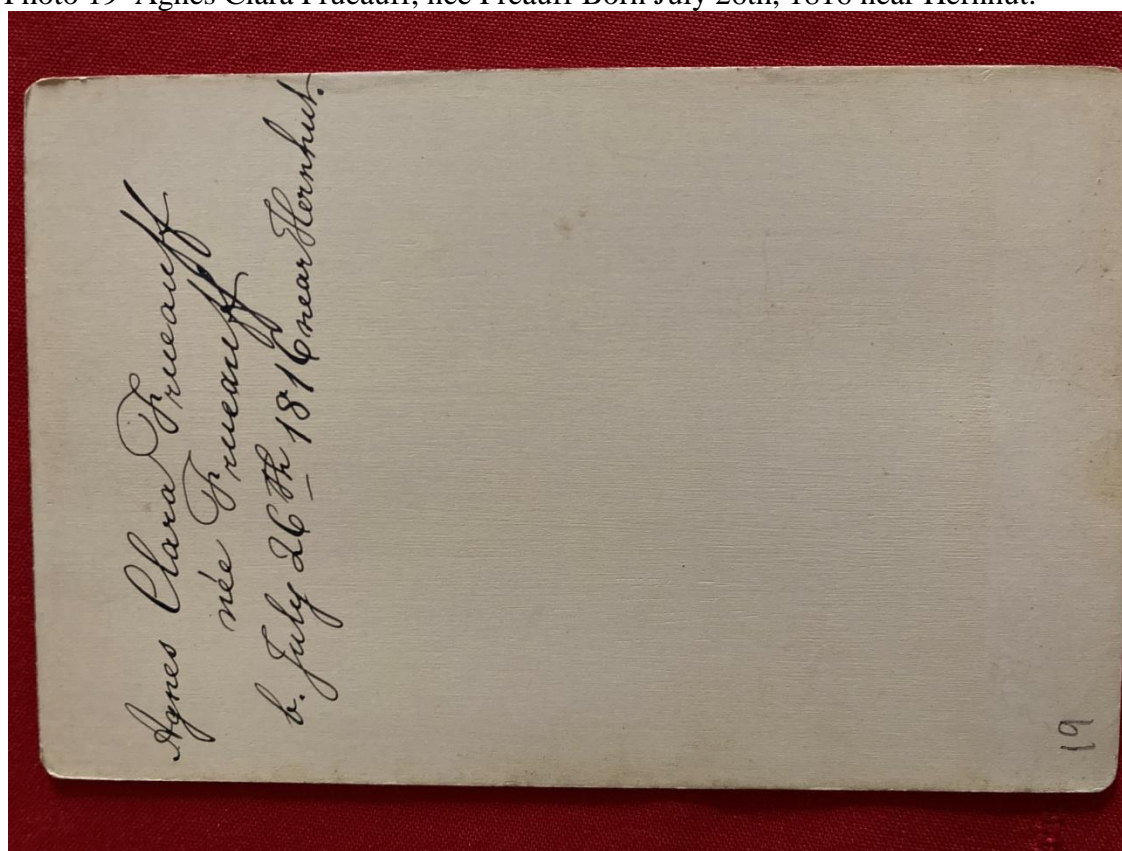 Photo 19 Agnes Clara Frueauff, nee Freauff Born July 26th, 1816 near Hernhut.
Agnes Clara Frueauff
née Frueauff
b. July 26th 1816 near Hernhut.
19